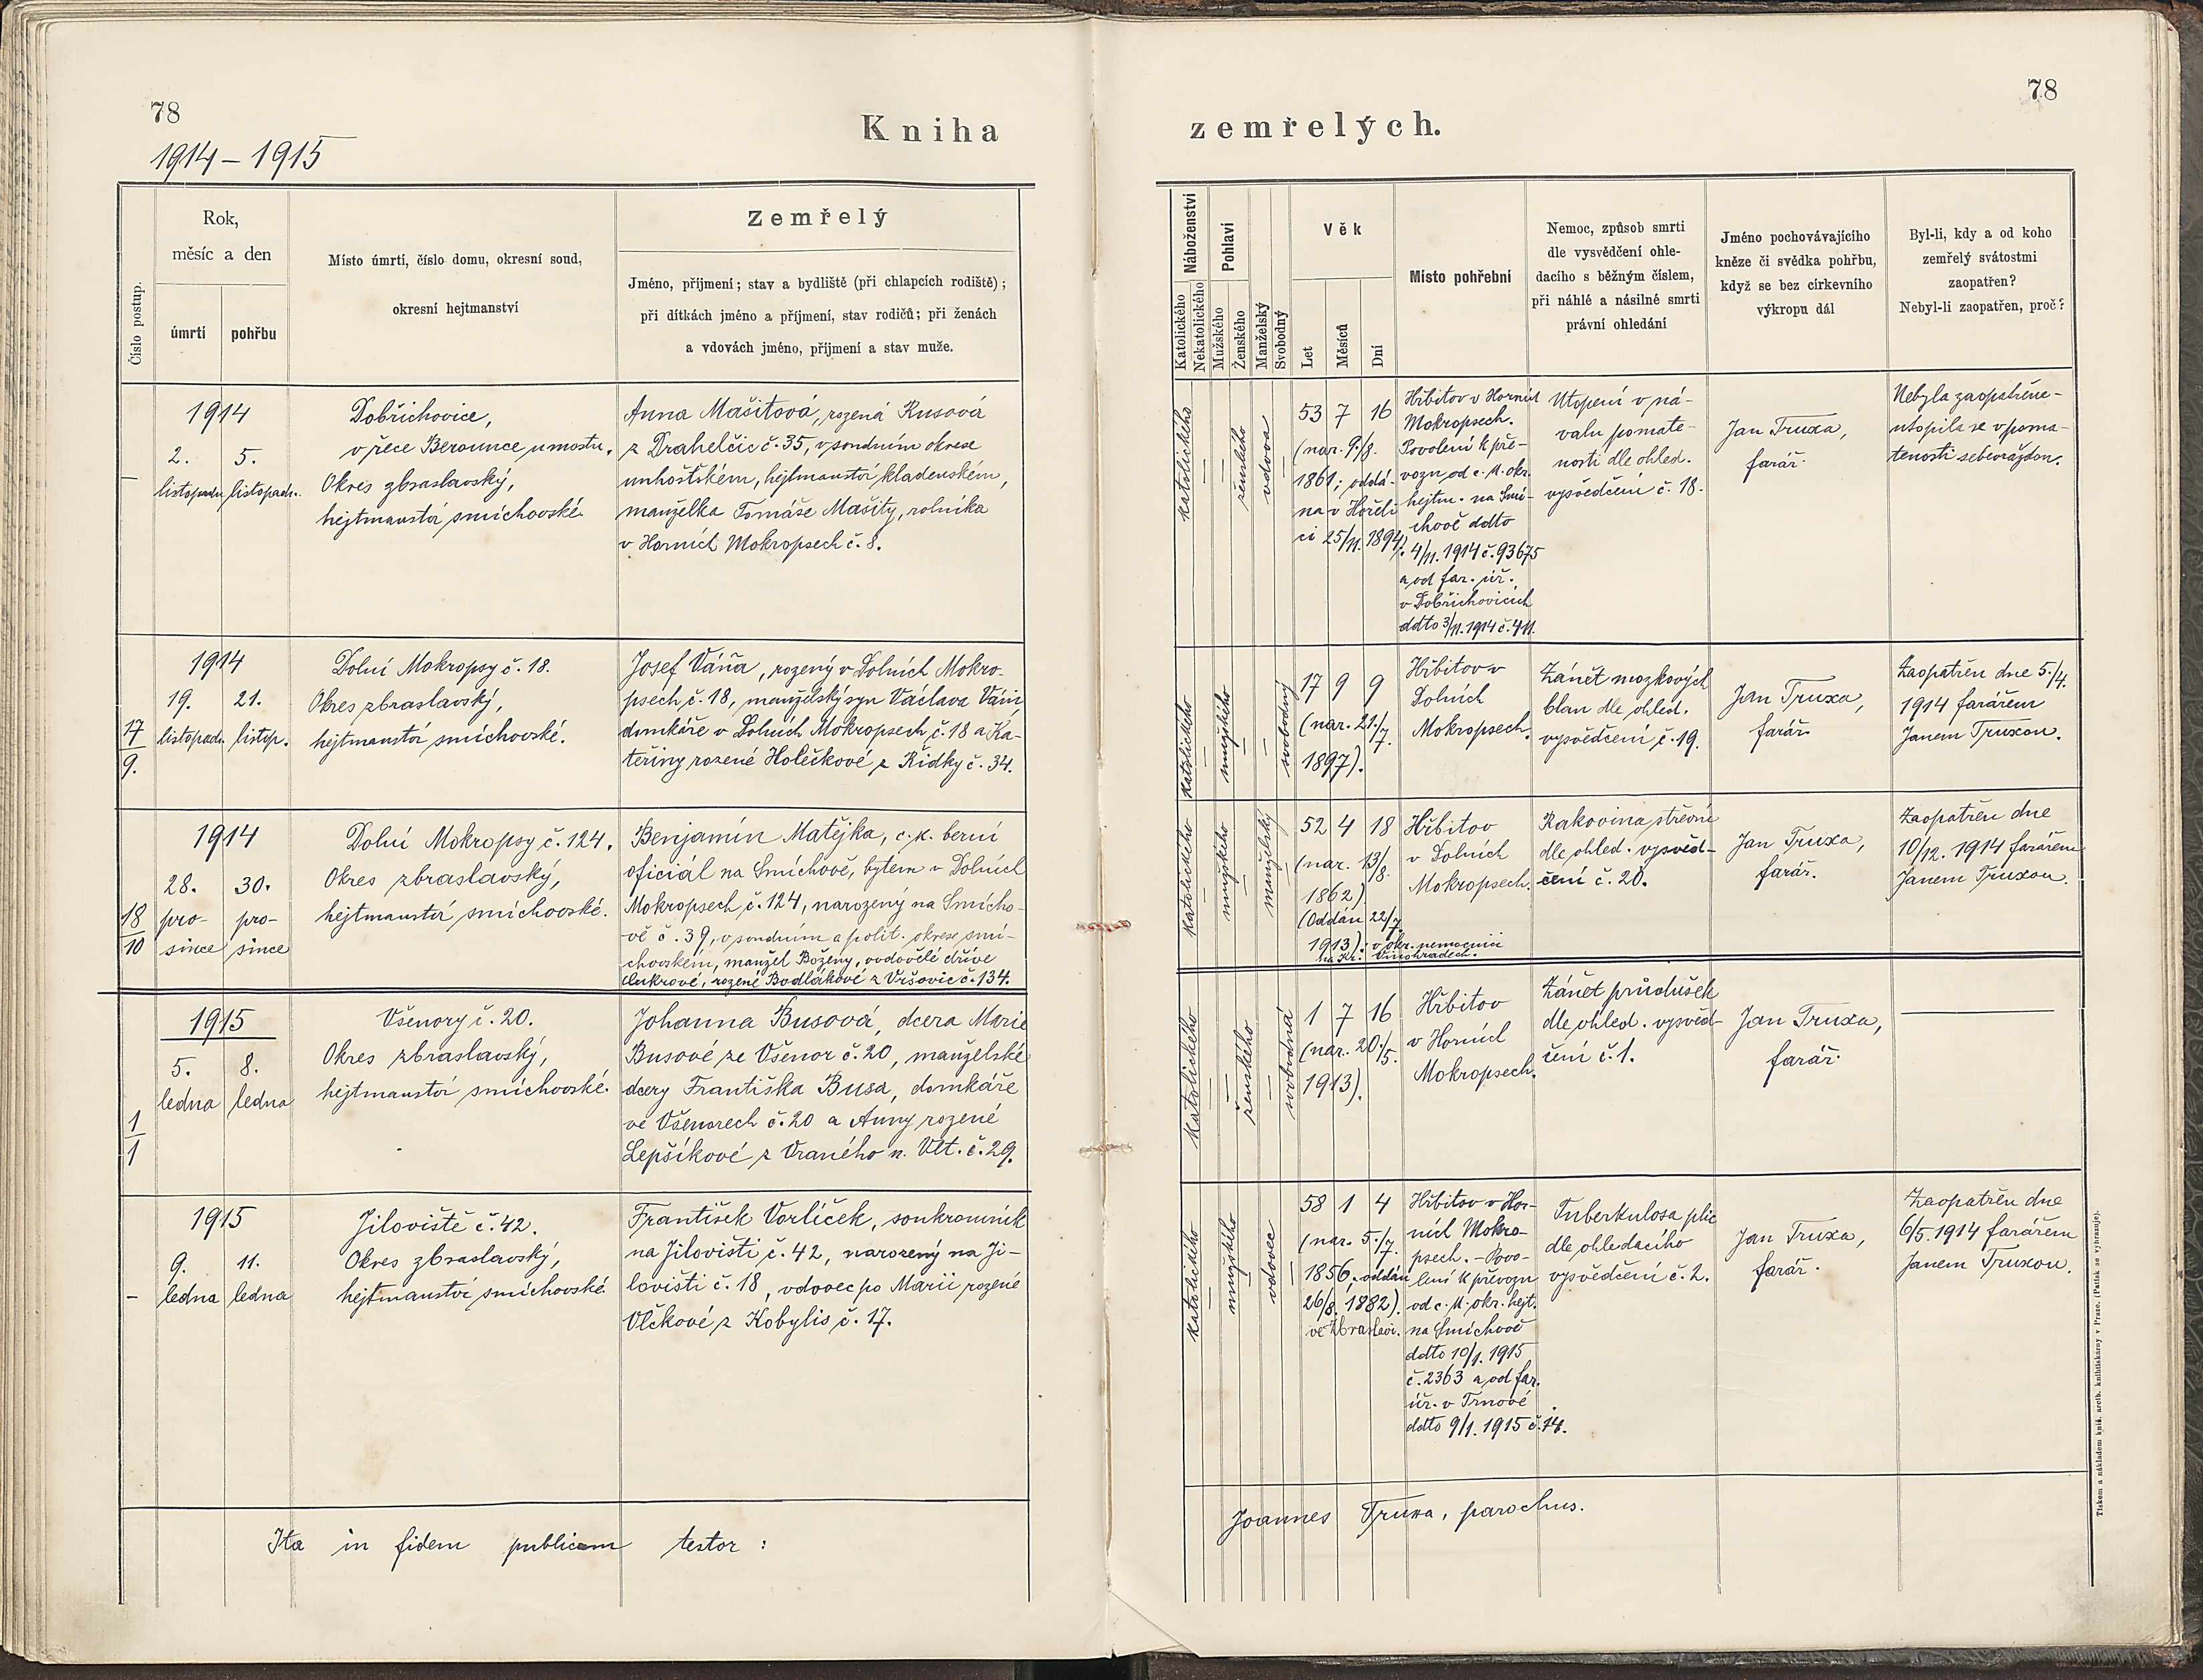 78
78
Kniha
zemřelých.
1914 – 1915
Číslo postup.
Rok,
měsíc a den
úmrtí
pohřbu
Místo úmrtí, číslo domu, okresní soud,
okresní hejtmanství
Zemřelý
Jméno, příjmení; stav a bydliště (při chlapcích rodiště);
při dítkách jméno a příjmení, stav rodičů; při ženách
a vdovách jméno, příjmení a stav muže.
Náboženství
Katolického
Nekatolického
Pohlaví
Mužského
Ženského
Manželský
Svobodný
Věk
Let
Měsíců
Dní
Místo pohřební
Nemoc, způsob smrti
dle vysvědčení ohle-
dacího s běžným číslem,
při náhlé a násilné smrti
právní ohledání
Jméno pochovávajícího
kněze či svědka pohřbu,
když se bez církevního
výkropu dál
Byl-li, kdy a od koho
zemřelý svátostmi
zaopatřen?
Nebyl-li zaopatřen, proč?
–
1914
2.
listopadu
5.
listopadu.
Dobřichovice,
v řece Berounce u mostu.
Okres zbraslavský,
hejtmanství smíchovské.
Anna Mašitová, rozená Rusová
z Drahelčic č. 35, v soudním okrese
unhošťském, hejtmanství kladenském,
manželka Tomáše Mašity, rolníka
v Horních Mokropsech č. 8.
katolického
ženského
vdova
53 7 16
(nar. 9./8.
1861; oddá-
na v Hořeli
ci 25/11. 1894).
Hřbitov v Horních
Mokropsech.
Povolení k pře-
vozu od c. k. okr.
hejtm. na Smí-
chově ddto
4/11. 1914 č. 93675
a od far. úř.
v Dobřichovicích
ddto 3/11. 1914 č. 411.
Utopení v ná-
valu pomate-
nosti dle ohled.
vysvědčení č. 18.
Jan Truxa,
farář.
Nebyla zaopatřena –
utopila se v poma-
tenosti sebevraždou.
17
9.
1914
19.
listopadu
21.
listop.
Dolní Mokropsy č. 18.
Okres zbraslavský,
hejtmanství smíchovské.
Josef Váňa, rozený v Dolních Mokro-
psech č. 18, manželský syn Václava Váni
domkáře v Dolních Mokropsech č. 18 a Ka-
teřiny rozené Holečkové z Řidky č. 34.
katolického
mužského
svobodný
17 9 9
(nar. 21./7.
1897).
Hřbitov v
Dolních
Mokropsech.
Zánět mozkových
blan dle ohled.
vysvědčení č. 19.
Jan Truxa,
farář.
Zaopatřen dne 5./4.
1914 farářem
Janem Truxou.
18
10
1914
28.
pro-
since
30.
pro-
since
Dolní Mokropsy č. 124.
Okres zbraslavský,
hejtmanství smíchovské.
Benjamín Matějka, c. k. berní
oficiál na Smíchově, bytem v Dolních
Mokropsech č. 124, narozený na Smícho-
vě č. 39, v soudním a polit. okrese smí-
chovském, manžel Boženy, ovdovělé dříve
Cukrové, rozené Bodlákové z Vršovic č. 134.
katolického
mužského
manželský
52 4 18
(nar. 13/8.
1862)
(Oddán 22/7.
1913): v okr. nemocnici
na Kr. Vinohradech.
Hřbitov
v Dolních
Mokropsech.
Rakovina střevní
dle ohled. vysvěd-
čení č. 20.
Jan Truxa,
farář.
Zaopatřen dne
10/12. 1914 farářem
Janem Truxou.
1
1
1915
5.
ledna
8.
ledna
Všenory č. 20.
Okres zbraslavský,
hejtmanství smíchovské.
Johanna Busová, dcera Marie
Busové ze Všenor č. 20, manželské
dcery Františka Busa, domkáře
ve Všenorech č. 20 a Anny rozené
Lepšíkové z Vraného n. Vlt. č. 29.
katolického
ženského
svobodná
1 7 16
(nar. 20./5.
1913).
Hřbitov
v Horních
Mokropsech.
Zánět průdušek
dle ohled. vysvěd-
čení č. 1.
Jan Truxa,
farář.
–
1915
9.
ledna
11.
ledna
Jíloviště č. 42.
Okres zbraslavský,
hejtmanství smíchovské.
František Vorlíček, soukromník
na Jílovišti č. 42, narozený na Jí-
lovišti č. 18, vdovec po Marii rozené
Vlčkové z Kobylis č. 17.
katolického
mužského
vdovec
58 1 4
(nar. 5./7.
1856, oddán
26/8. 1882).
ve Zbraslavi.
Hřbitov v Hor-
ních Mokro-
psech. – Povo-
lení k převozu
od c. k. okr. hejt.
na Smíchově
ddto 10/1. 1915
č. 2363 a od far.
úř. v Trnové
ddto 9/1. 1915 č. 14.
Tuberkulosa plic
dle ohledacího
vysvědčení č. 2.
Jan Truxa,
farář.
Zaopatřen dne
6/5. 1914 farářem
Janem Truxou.
Ita in fidem publicam testor :
Joannes Truxa, parochus.
Tiskem a nákladem kníž. arcib. knihtiskárny v Praze. (Patisk se vyhrazuje).